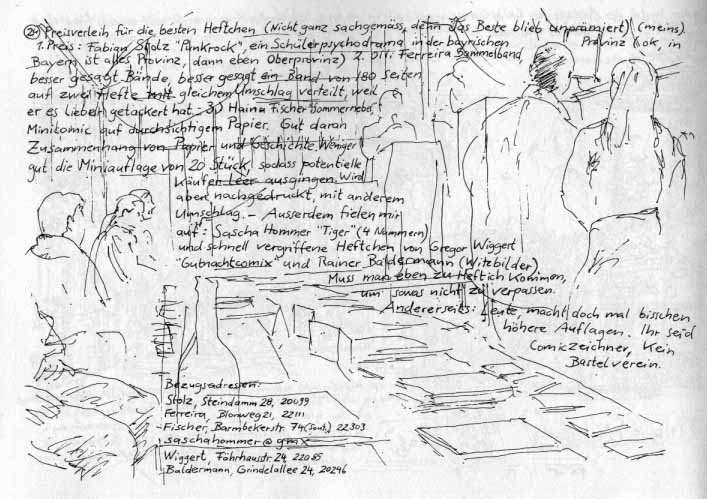 2.) Preisverleih für die besten Heftchen (Nicht ganz sachgemäss, denn das Beste blieb unprämiert) (meins).
1. Preis: Fabian Stolz "Punkrock", ein Schülerpsychodrama in der bayrischen Provinz (ok, in
Bayern ist alles Provinz, dann eben Oberprovinz) 2. Ferreira Sammelband,
besser gesagt Bände, besser gesagt ein Band von 180 Seiten
auf zwei Hefte mit gleichem Umschlag verteilt, weil
er es lieber getackert hat. 3.) Haina Fischer Sommernebel,
Minicomic auf durchsichtigem Papier. Gut daran
Zusammenhang von Papier und Geschichte. Weniger
gut die Miniauflage von 20 Stück, sodass potentielle
Käufer leer ausgingen. Wird
aber nachgedruckt, mit anderem
Umschlag. – Ausserdem fielen mir
auf: Sascha Hommer "Tiger" (4 Nummern)
und schnell vergriffene Heftchen von Gregor Wiggert
"Gutnachtcomix" und Rainer Baldermann (Witzbilder)
Muss man eben zu Heftich kommen,
um sowas nicht zu verpassen.
Andererseits: Leute, macht doch mal bisschen
höhere Auflagen. Ihr seid
Comiczeichner, kein
Bastelverein.
Bezugsadressen:
Stolz, Steindamm 28, 20099
Ferreira, 21, 22111
Fischer, Barmbekerstr. 74 (Sout.) 22303
saschahommer@gmx
Wiggert, Föhrhausstr. 24 22085
Baldermann, Grindelallee 24, 20246